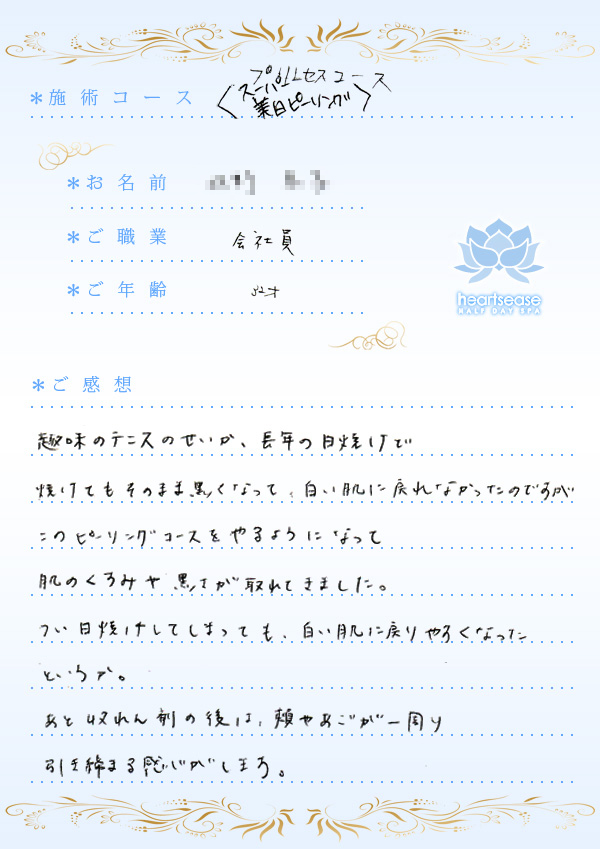 プリンセスコース
＊施術コース 〈スーパー美白ピーリング〉
＊お名前
＊ご職業 会社員
＊ご年齢 52才
heartsease
HALF DAY SPA
＊ご感想
趣味のテニスのせいか、長年の日焼けで
焼けてもそのまま黒くなって、白い肌に戻れなかったのですが
このピーリングコースをやるようになって
肌のくすみや黒さが取れてきました。
つい日焼けしてしまっても、白い肌に戻りやすくなった
というか。
あと収れん剤の後は、頬やあごが一周り
引き締まる感じがします。